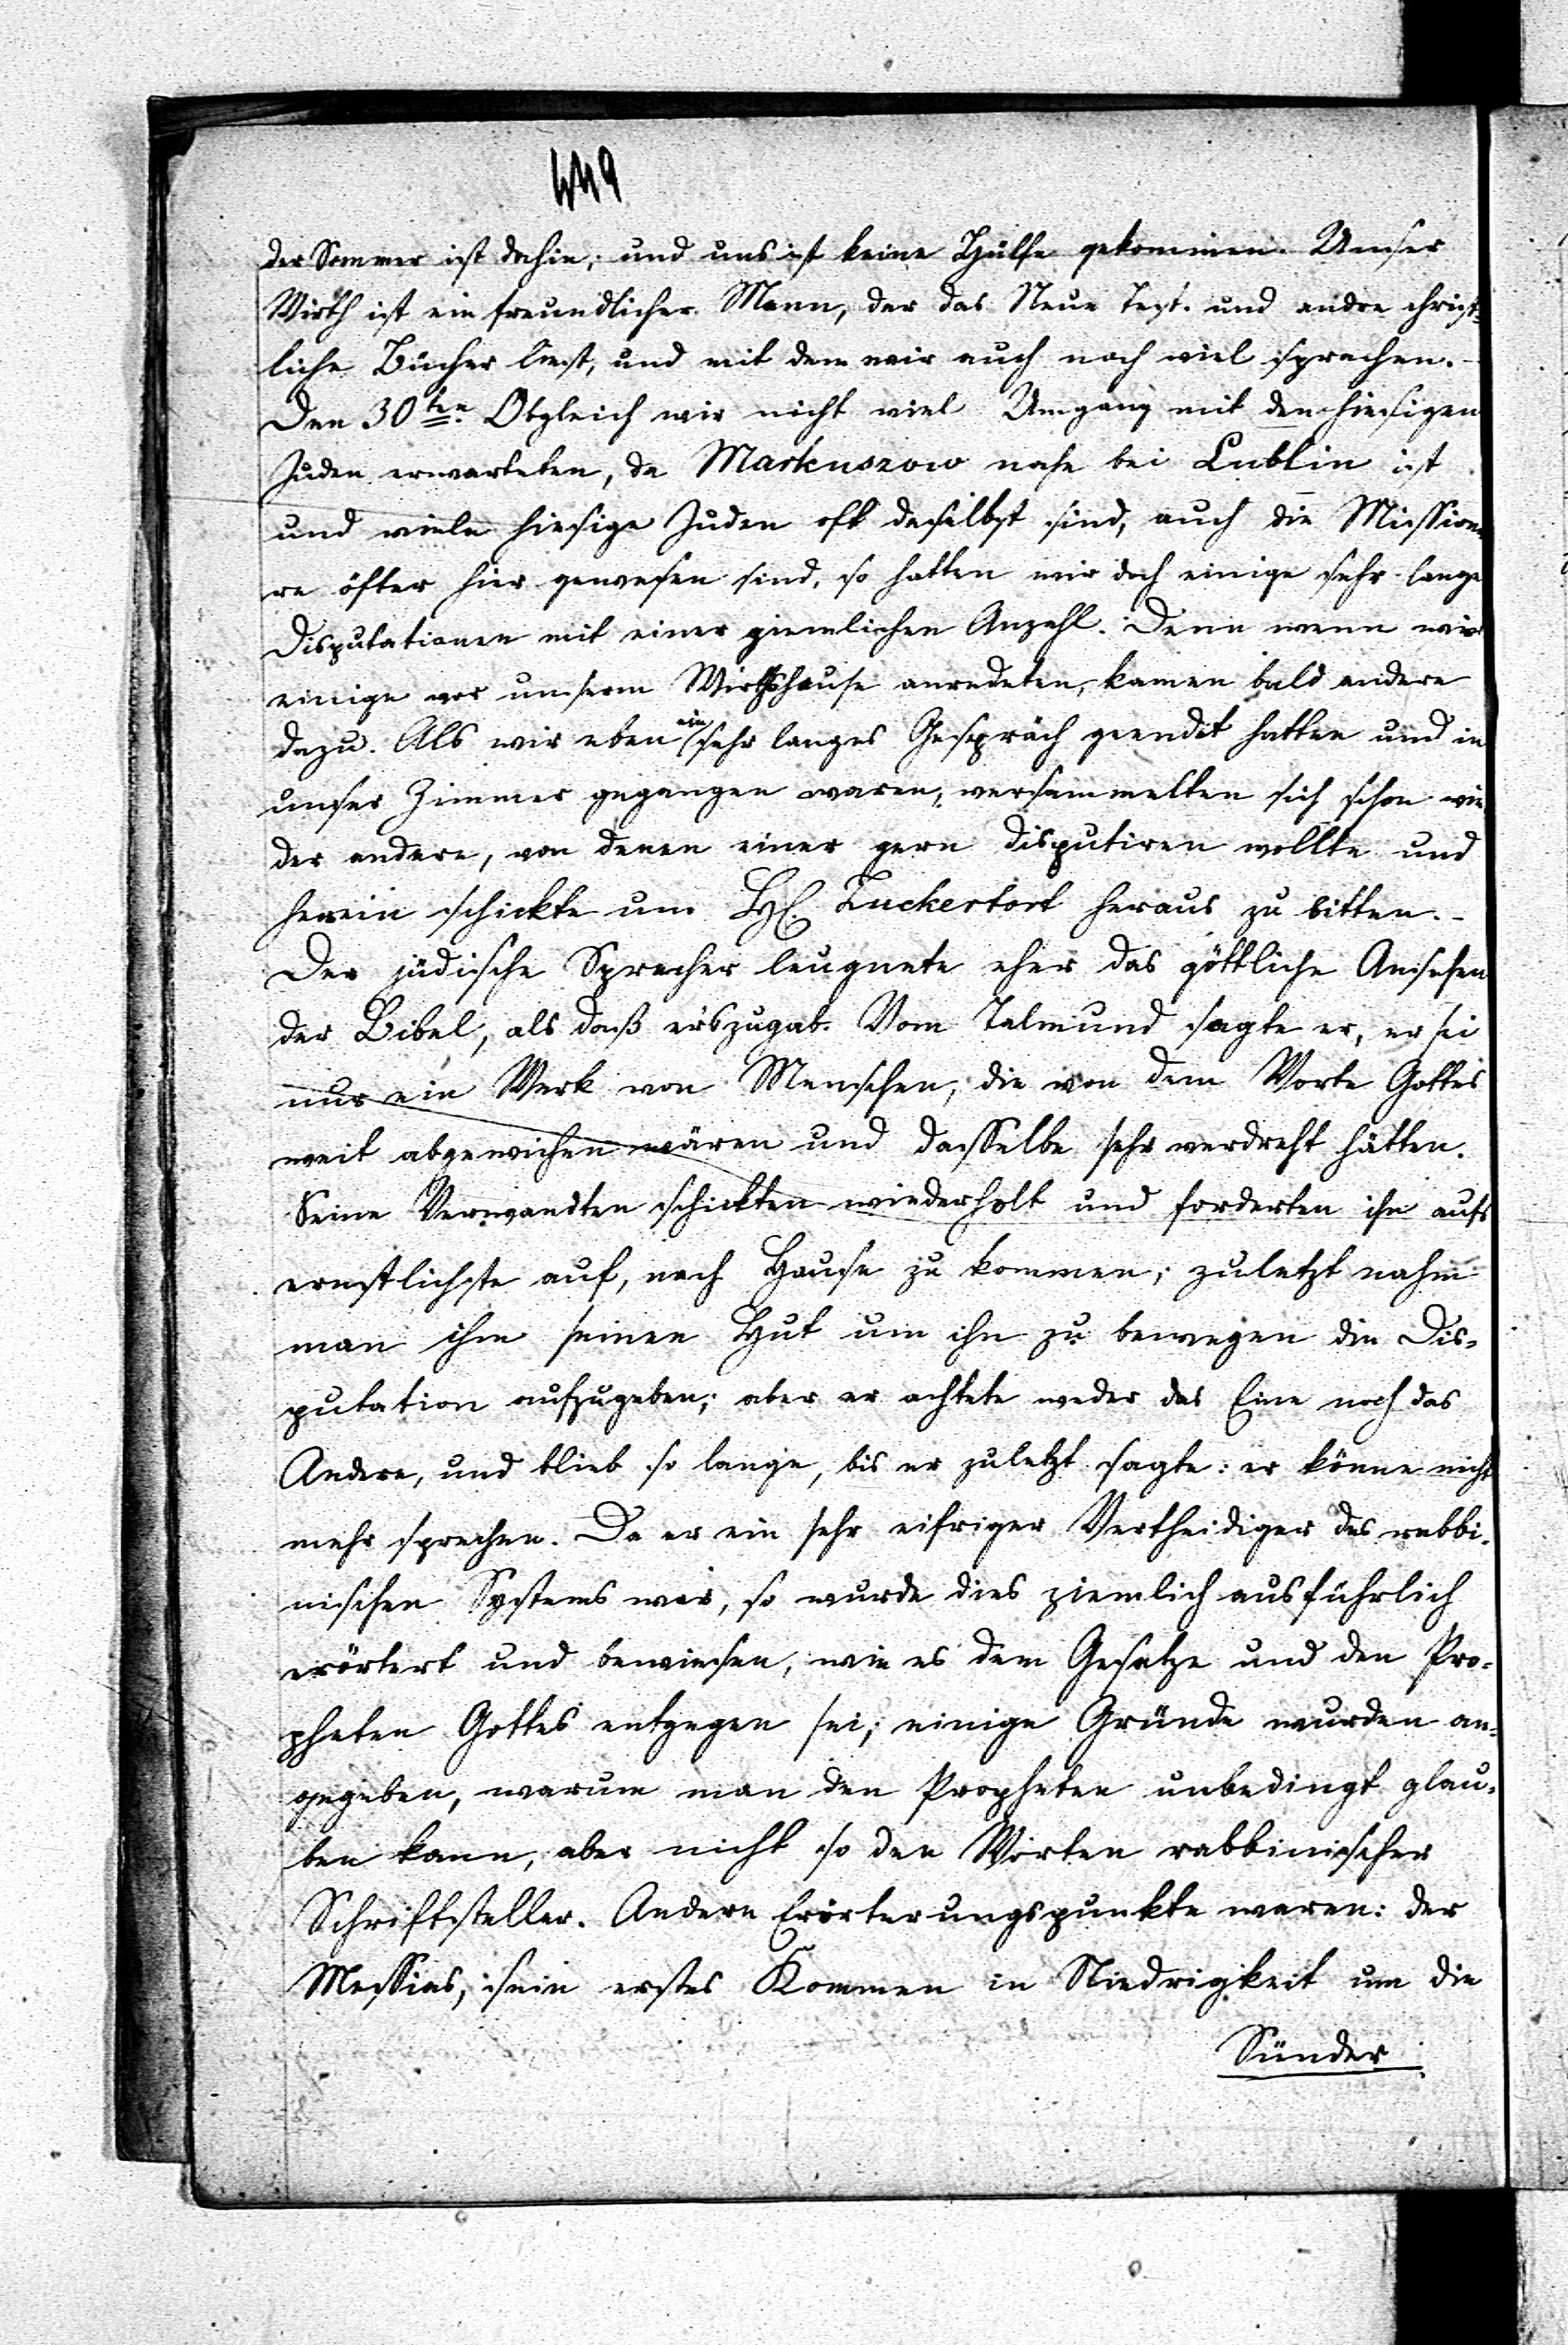 449
der Sommer ist dahin; und uns ist keine Hülfe gekommen. Unser
Wirth ist ein freundlicher Mann, der das Neue Test. und andre christ=
liche Bücher liest, und mit dem wir auch noch viel sprachen. –
Den 30ten. Obgleich wir nicht viel Umgang mit den hiesigen
Juden erwarteten, da Markuszow nahe bei Lublin ist
und viele hiesige Juden oft daselbst sind, auch die Missiona
re öfter hier gewesen sind, so hatten wir doch einige sehr lange
Disputationen mit einer ziemlichen Anzahl. Denn wenn wir
einige vor unserm Wirthshause anredeten, kamen bald andere
dazu. Als wir eben ein sehr langes Gespräch geendet hatten und in
unser Zimmer gegangen waren, versammelten sich schon wie
der andere, von denen einer gern disputiren wollte und
herein schickte um H. Zuckertort heraus zu bitten. –
Der jüdische Sprecher leugnete eher das göttliche Ansehen
der Bibel, als daß er's zugab. Vom Talmund sagte er, er sei
nur ein Werk von Menschen, die von dem Worte Gottes
weit abgewichen wären und dasselbe sehr verdreht hätten.
Seine Verwandten schickten wiederholt und forderten ihn aufs
ernstlichste auf, nach Hause zu kommen; zuletzt nahm
man ihm seinen Hut um ihn zu bewegen die Dis=
putation aufzugeben; aber er achtete weder das Eine noch das
Andere, und blieb so lange, bis er zuletzt sagte: er könne nicht
mehr sprechen. Da er ein sehr eifriger Vertheidiger des rabbi=
nischen Systems war, so wurde dies ziemlich ausführlich
erörtert und bewiesen, wie es dem Gesetze und den Pro=
pheten Gottes entgegen sei; einige Gründe wurden an=
gegeben, warum man den Propheten unbedingt glau=
ben kann, aber nicht so den Worten rabbinischer
Schriftsteller. Andere Erörterungspunkte waren: der
Messias, sein erstes Kommen in Niedrigkeit um die
Sünder